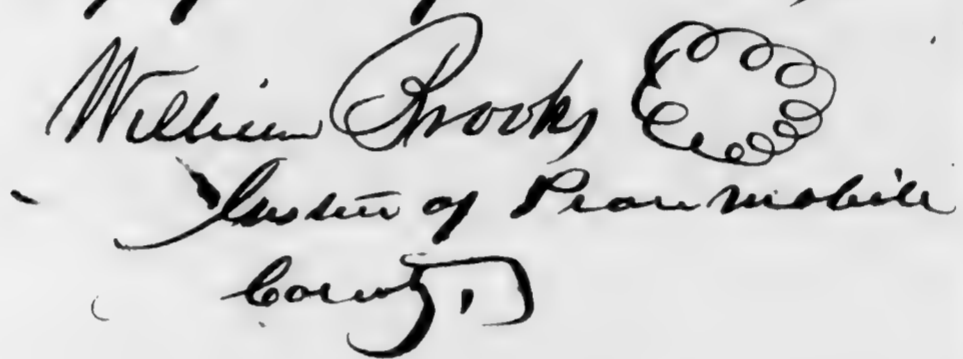 William Brooks
Justice of Peace Mobile
County